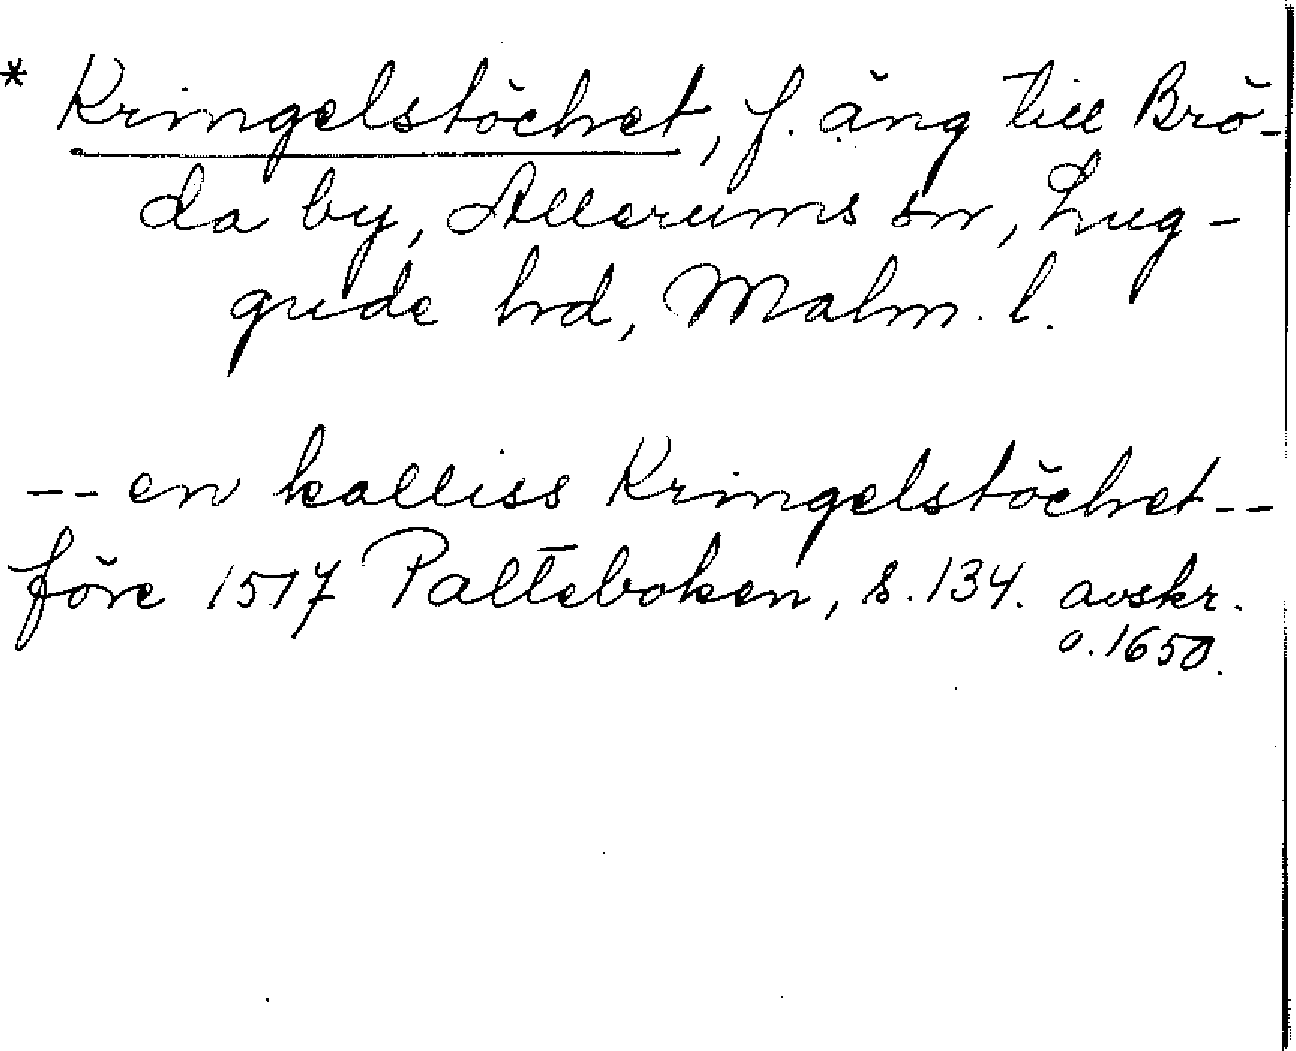 * Kringelstöchet, f. äng till Brö-
da by, Allerums sn, Lug-
gude hd, Malm. l.
-- en kalliss Kringelstöchet --
före 1517 Palteboken, s. 134. avskr.
o. 1650.